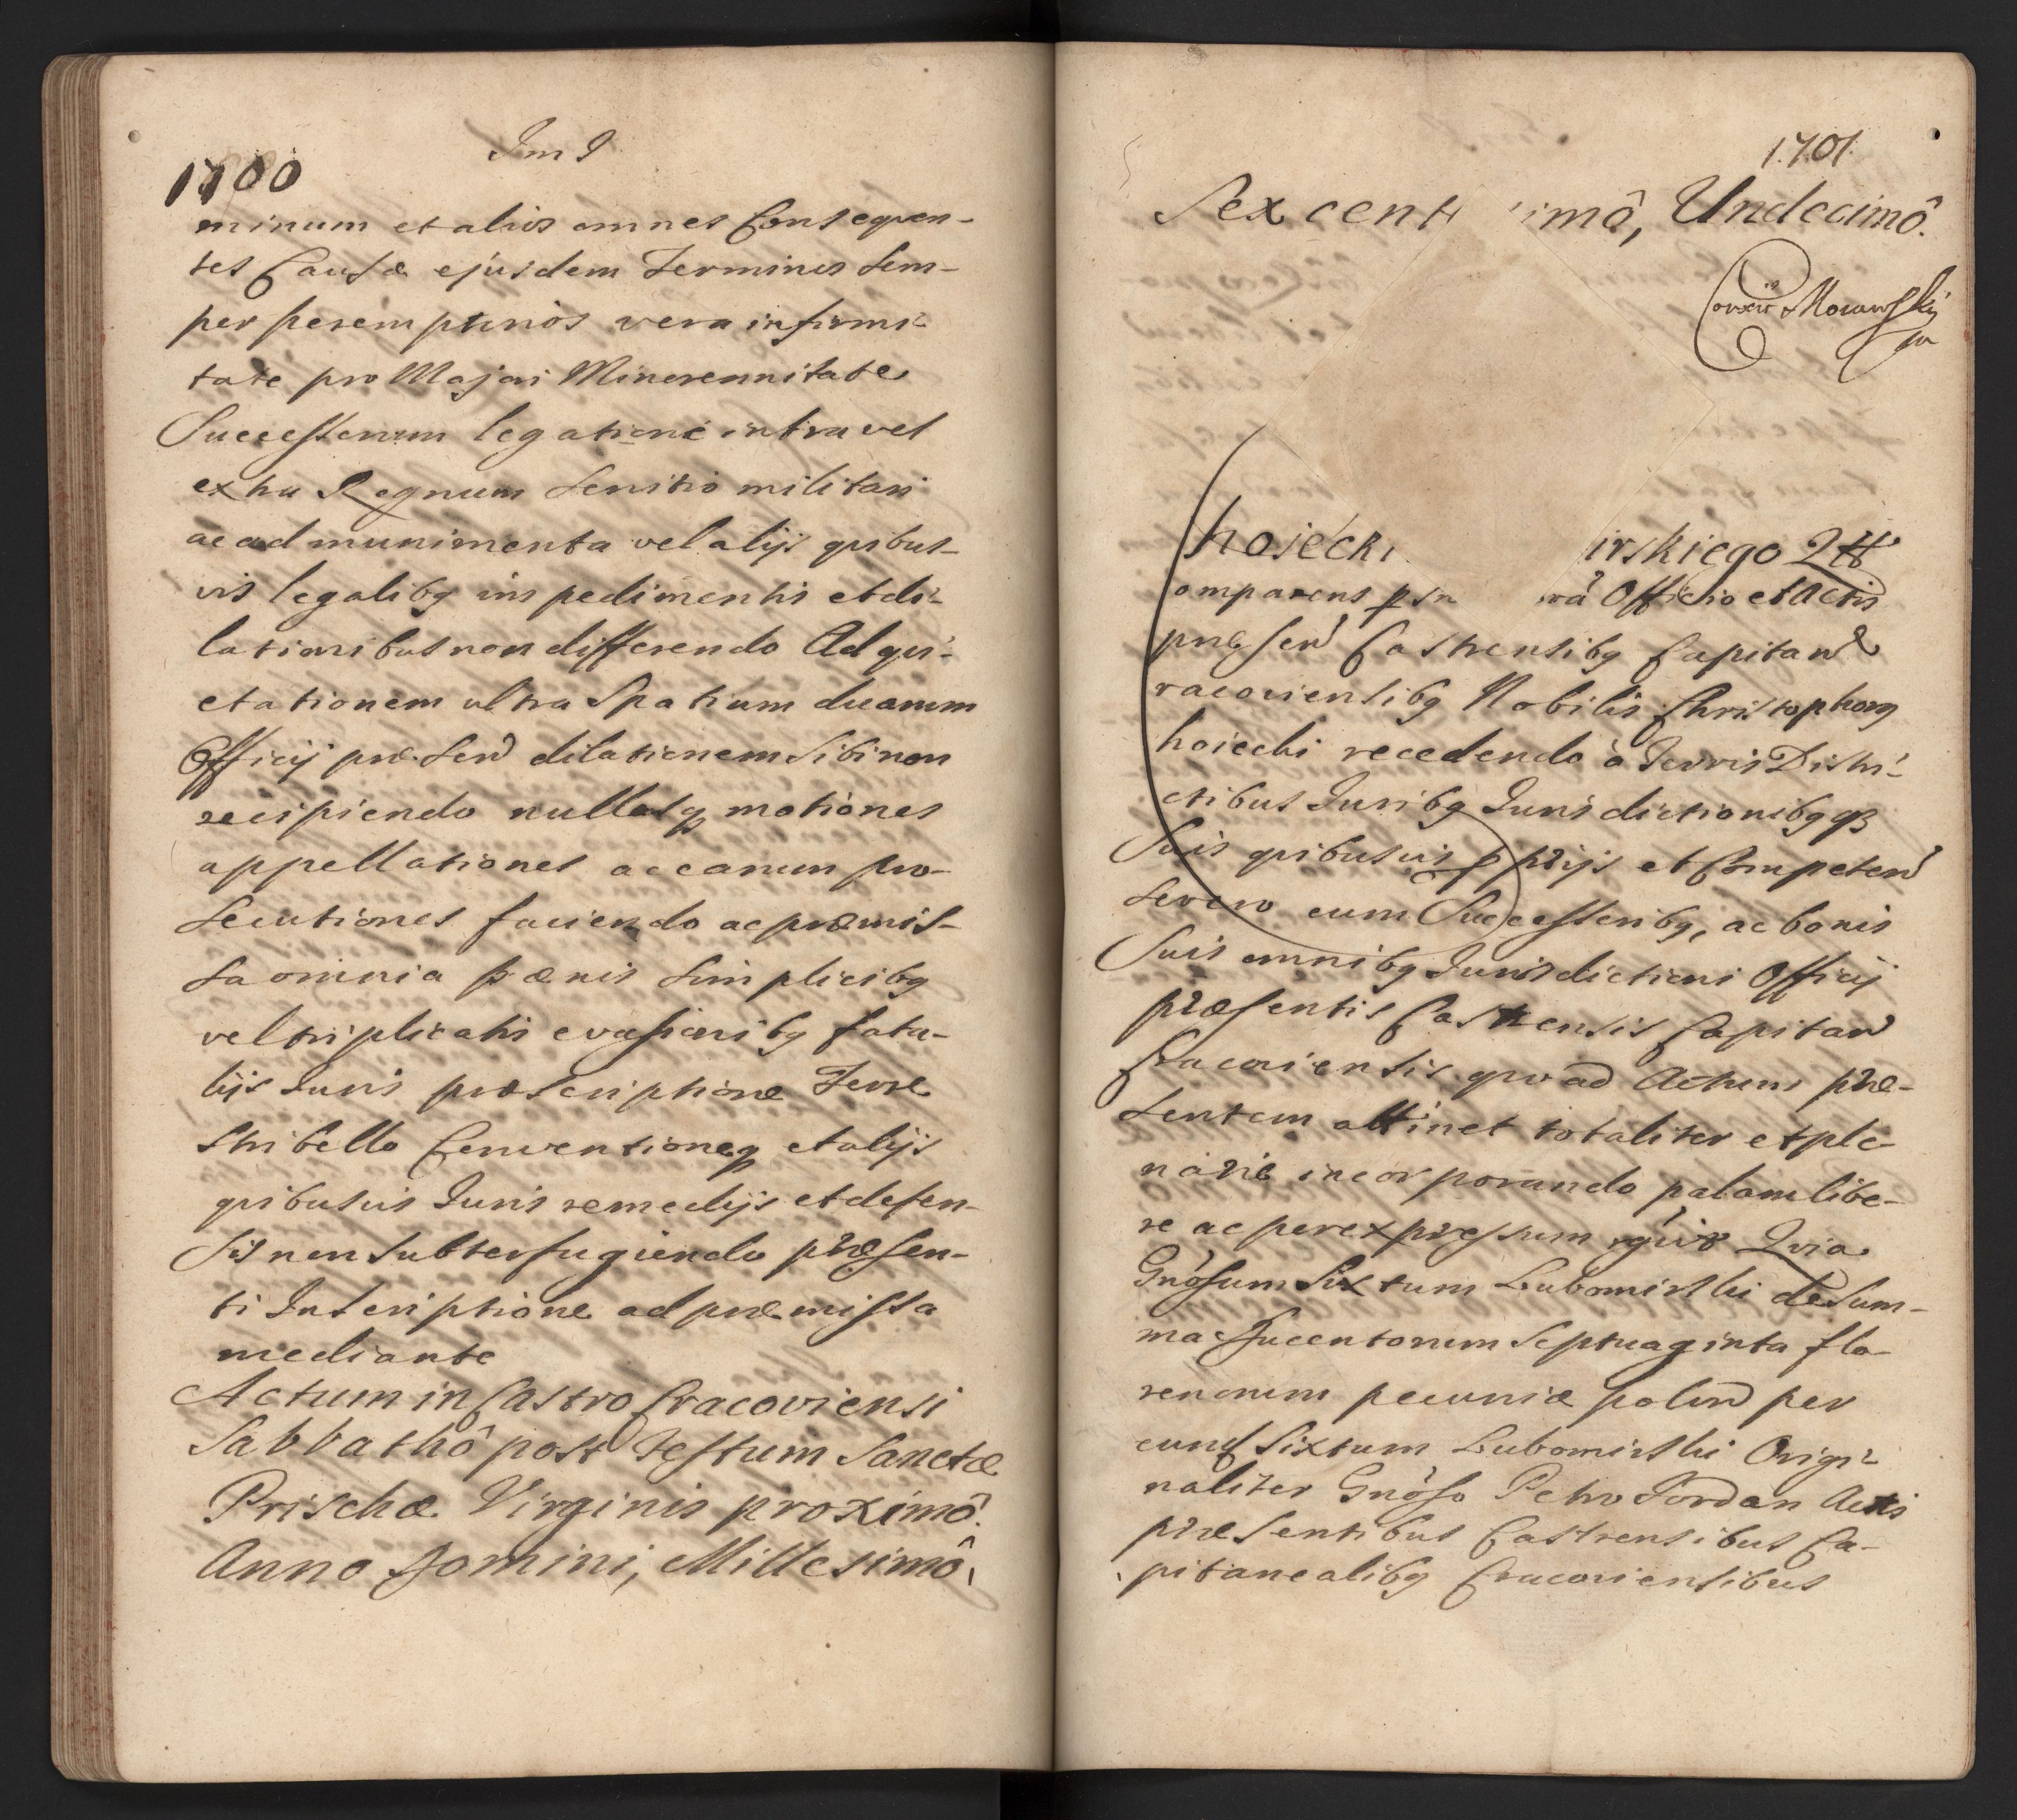 1700
Im I
minum et alios omnes Consequen-
tes Causæ ejusdem Terminos sem-
per peremptorios vera infirmi-
tate pro Majori Minorennitate
Successorum legatione intra vel
extra Regnum servitio militari
ac ad munimenta vel alijs quibus-
vis legalibq impedimentis et di-
lationibus non differendo Ad qui-
etationem ultra Spatium duarum
Officij præsen dilationem sibi non
recipiendo nullasq motiones
appellationes ac earum pro-
secutiones faciendo ac præmis-
sa omnia pænis simplicibq
vel triplicatis evasionibq fata-
lijs Juris præscriptione Terræ
stri bello Conventioneq et alijs
quibusvis Juris remedijs et defen-
sis non subterfugiendo præsen-
ti Inscriptione ad præmissa
mediante
Actum in Castro Cracoviensi
Sabbathô post Festum Sanctæ
Prischæ Virginis proximô.
Anno Domini, Millesimô,
1701.
Sexcent imô, Undecimô.
Morawski
hoiecki irskiego 2tt
omparens rà Officio et Actis
præsen Castrensibq Capitan
racoviensibq Nobilis Christophorq
hoiecki recedendo à Terris Distri-
ctibus Juribq Jurisdictionibqq
Suis quibusvis pprijs et Competen
severo cum Successoribq, ac bonis
Suis omnibq Jurisdictioni Officij
præsentis Castrensis Capitan
Cracoviensis quoad Actum præ-
sentem attinet totaliter et ple-
nariè incorporando palam libe-
re ac per expressum Quia
Gnôsum Sixtum Lubomirski de Sum-
ma Ducentorum Septuaginta flo-
renorum pecuniæ polon per
eund Sixtum Lubomirski Origi-
naliter Gnôso Petro Jordan Actis
præsentibus Castrensibus Ca-
pitanealibq Cracoviensibus